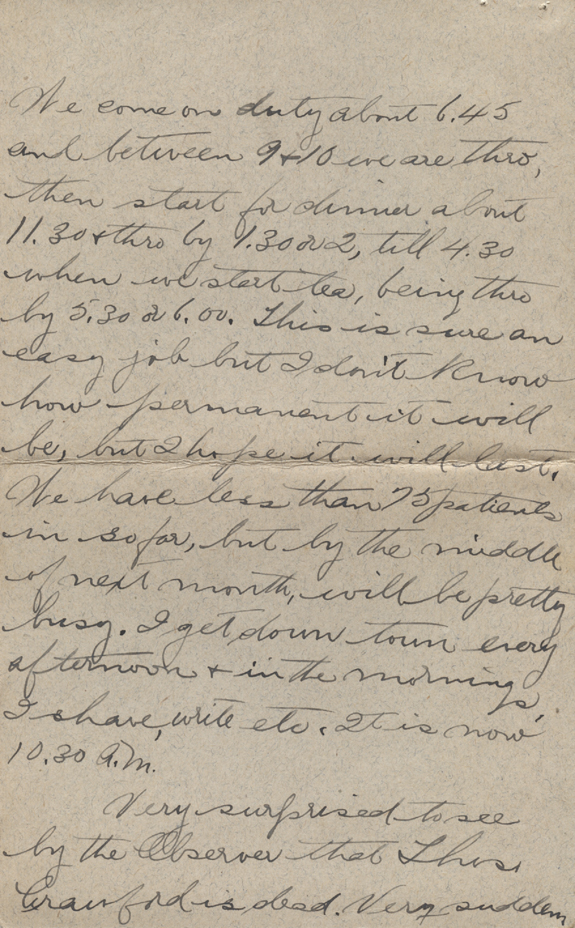 We come on duty about 6.45
and between 9+10 we are thro,
then start for dinner about
11.30+thro by 1.30 or 2, till 4.30
when we start tea, being thro
by 5.30 or 6.00. This is sure an
easy job but I don't know
how permanent it will
be, but I hope it will last.
We have less than 75 patients
in so far, but by the middle
of next month, will be pretty
busy. I get down town every
afternoon + in the mornings,
I shave, write etc. It is now
10.30 A.M.
Very surprised to see
by the Observer that Thos.
Crawford is dead. Very sudden